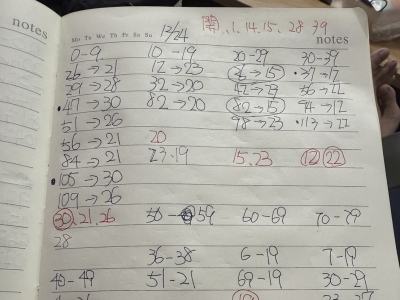 notes
Mo Tu We Th Fr Sa Su 12/24 1.14.15.28 39
notes
0-9 10-19 20-29 30-39
26→21 12→23 26→15 37→17
29→28 32→20 42→23 56→22
47→30 82→20 82→15 94→12
51→26 98→23 113→22
56→21 20
84→21 23.19 15.23 12 22
105→30
109→26
30.21.26 59 60-69 70-79
28
36-38 6-19 7-19
40-49 51-21 69-19 30-29